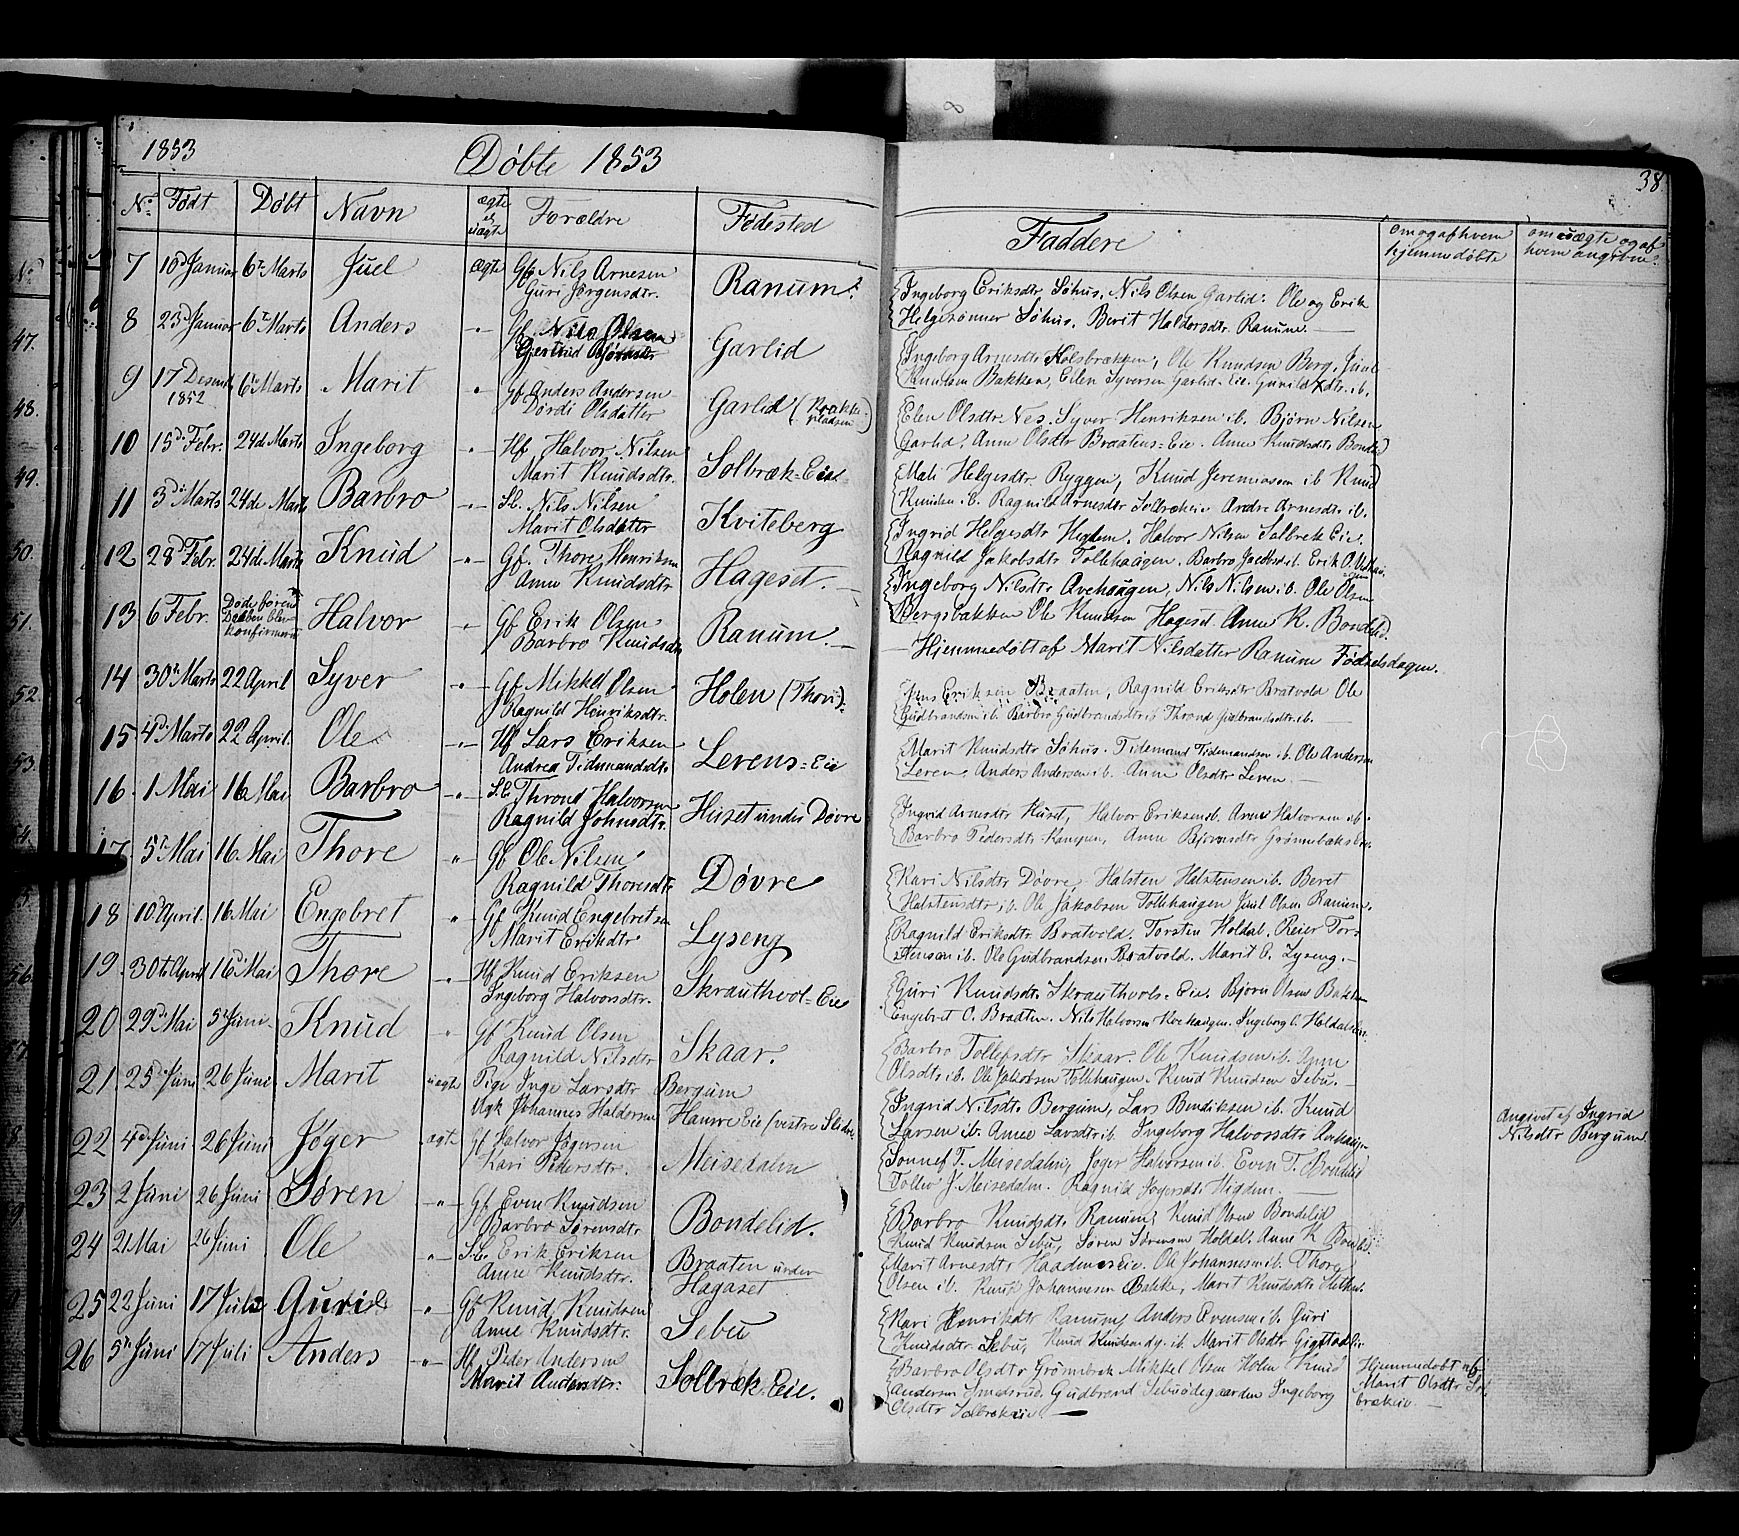 1853
Døbte 1853
38
No. Født Døbt Navn ægte el. uægte Forældre Fødested
Faddere
om og af hvem hjemmedøbte
om uægte og af hvem angiven?
7 10d Januar 6te Marts Juel ægte Gf. Nils Arnesen Ranum.
Guri Jørgensdtr.
Ingeborg Eriksdtr Søhus. Nils Olsen Garlid. Ole og Erik
Helgesønner Søhus. Berit Haldorsdtr. Ranum.
8 23d Januar 6te Marts Anders -"- Gf. Nils Olsen Garlid
Gjertrud Bjørnsdtr
Ingeborg Arnesdtr Holsbrækken, Ole Knudsen Berg, Juul
Knudsen Bakken, Eilen Syversen Garlid. Eie. Gunild dtr. ib.
9 17 Desemb 1852 6te Marts Marit " Gf. Anders Andersen Garlid
Dordi Olsdatter
Elen Olsdtr. Nes. Syver Henriksen ib. Bjørn Nilsen
Garlid. Anne Olsdtr Braatens-Eie. Anne Knudsdtr Bonde)
10 15d Febr. 24de Marts Ingeborg -"- Hf. Halvor Nilsen Solbræk-Eie
Marit Knudsdtr.
Mali Helgesdtr Ryggen, Knud Jeremiassen ib Knud
Knudsen ib. Ragnild Arnesdtr Solbrækeie Andre Arnesdtr ib.
11 3di Marts 24de Marts Barbro -"- Sl. Nils Nilsen Kviteberg
Marit Olsdatter
Ingrid Helgesdtr Hegdem. Halvor Nilsen Solbrek Eie.
Ragnild Jakobsdtr Tollehaugen, Barbro Jacobsd ib. Erik O.
12 28d Febr. 24de Marts Knud -"- Gf. Thore Henriksen Hageset.
Anne Knudsdtr
Ingeborg Nilsdtr Avehaugen, Nils Nilsen ib. Ole Olsen
Bergsbakken Ole Knudsen Hageset Anne K. Bondelid.
13 6 Febr. Døde førend Daaben blev konfirmeret Halvor " Gf Erik Olsen Ranum.
Barbro Knudsdtr
Hjemmedøbt af Marit Nilsdatter Ranum Fødselsdagen.
14 30te Marts 22 April Syver -"- Gf. Mikkel Olsen Holen (Thori)
Ragnild Henriksdtr.
Jens Eriksen Braaten, Ragnild Eriksdtr Bratvold Ole
Gudbrandsen ib. Barbro Gudbrandsdtr ib Thrond Gudbrandsdtr. ib.
15 4de Marts 22 April. Ole -"- Hf Lars Eriksen Lerens-Eie
Andrea Tidemandsdtr
Marit Knudsdtr Søhus. Tidemand Tidemandsen ib. Ole Andersen
Leren, Anders Andersen ib. Anne Olsdtr Leren.
16. 1 Mai 16 Mai Barbro -"- S.E. Thrond Halvorsen Huset under Døvre
Ragnild Johnsdtr.
Ingrid Arnesdtr Huset, Halvor Eriksen ib. Arne Halvorsen ib.
Barbro Pedersdtr Kampen, Anne Bjørnsdtr Grønnebæks
17. 5te Mai 16. Mai Thore " Gf Ole Nilsen Døvre
Ragnild Thoresdtr
Kari Nilsdtr Døvre, Halsten Halstensen ib. Beret
Halstensdtr ib. Ole Jakobsen Tollehaugen Juul Olsen Ranum.
18 10 April. 16 Mai Engebret " Gf Knud Engebretsen Lyseng
Marit Eriksdtr
Ragnild Eriksdtr Bratvold. Torstin Holdal. Reier Tor-
stensen ib. Ole Gudbrandsen Bratvold. Marit O. Lyseng.
19. 30te April 16d Mai Thore -"- Hf Knud Eriksen Skrauthvol-Eie
Ingeborg Halvorsdtr.
Guri Knudsdtr Skrauthvols-Eie. Bjørn Olsen Bakken
Engebret O. Braaten. Nils Halvorsen Ingeborg O. Holdal
20 29d Mai 5te Juni Knud " Gf Knud Olsen Skaar.
Ragnild Nilsdtr
Barbro Tollefsdtr Skaar. Ole Knudsen ib. Anne
Olsdtr ib. Ole Jakobsen Tollehaugen. Knud Knudsen Sebu.
21. 25d Juni 26 Juni Marit uægte Pige Inge Larsdtr Bergum
Ugk Johannes Haldorsen Haure Eie (vestre Slidre
Ingrid Nilsdtr Bergum, Lars Bendiksen ib. Knud
Larsen ib. Anne Larsdtr ib. Ingeborg Halvorsdtr
Angivet af Ingrid
Nilsdtr Bergum
22 4de Juni 26 Juni Jøger ægte Gf Halvor Jøgersen Meisedalen
Kari Pedersdtr.
Sonnef T. Meisedalen, Jøger Halvorsen ib. Even T. Bondelid
Tollev J. Meisedalen. Ragnild Jøgersdtr Higdem.
23 2 Juni 26 Juni Søren -"- Gf Even Knudsen Bondelid.
Barbro Sørensdtr
Barbro Knudsdtr Ranum, Knud Olsen Bondelid
Knud Knudsen Sebu, Søren Sørensen Holdal. Anne K Bondelid.
24 21 Mai 26 Juni Ole " S.E. Erik Eriksen Braaten under
Anne Knudsdtr. Hagaset
Marit Arnesdtr Haadems Eie. Ole Johannesen ib. Thore
Olsen ib. Knud Johannesen Bakke, Marit Knudsdtr
25 22 Juni 17 Juli Guri " Gf Knud Knudsen Sebu
Anne Knudsdtr.
Kari Henriksdtr Ranum, Anders Evensen ib. Guri
Knudsdtr Sebu, Knud Knudsen dy. ib. Marit Olsdtr
26 5te Juni 17 Juli Anders -"- Hf. Peder Andersen Solbræk Eie.
Marit Andersdtr.
Barbro Olsdtr Grønebræk Mikkel Olsen Holen Knud
Andersen Smedsrud. Gudbrand Sebuødegaarden Ingeborg
Olsdtr Solbrækeie
Hjemmedøbt af
Marit Olsdtr Sol-
brækeie.